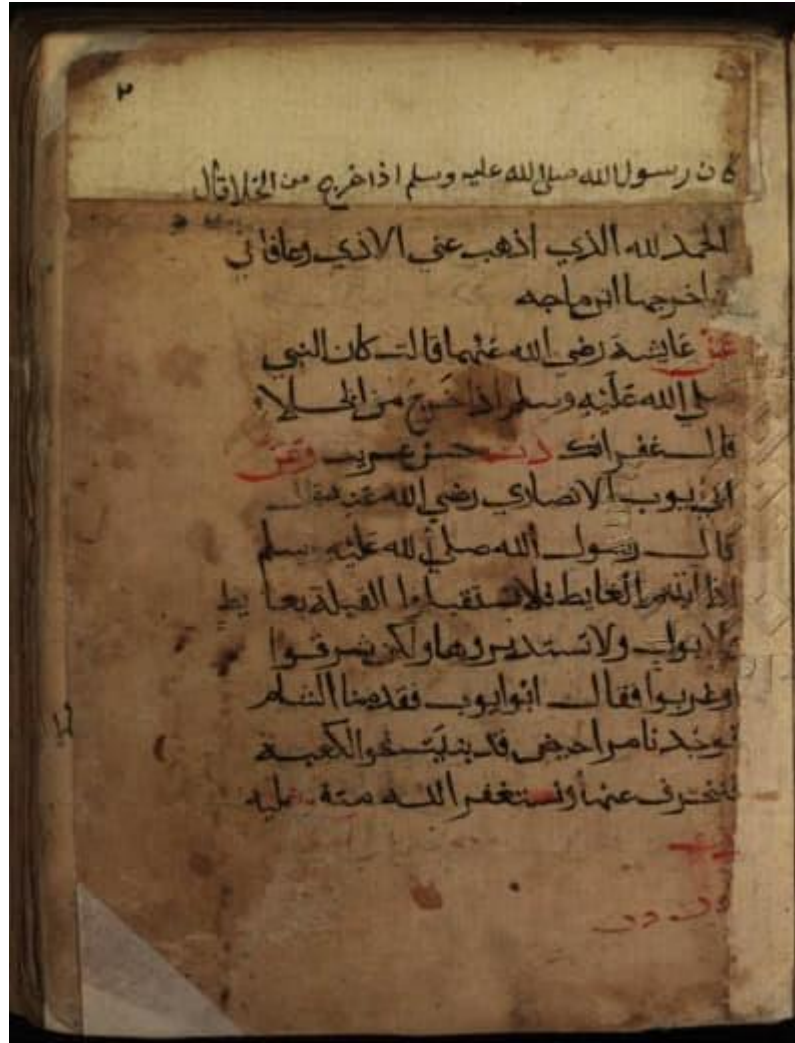 ٢
كان رسول الله صلى الله عليه وسلم اذا خرج من الخلا قال
الحمد لله الذي اذهب عني الاذي وعافاني
اخرجها ابن ماجه
عن عايشة رضي الله عنهما قالت كان النبي
صلي الله عليه وسلم اذا خرج من الخلاء
قال غفرانك دت حسن غريب وعن
ابي يوب الانصاري رضي الله عنه قال
قال رسول الله صلي الله عليه وسلم
اذا اتيتم الغايط فلا تستقبلوا القبلة بغايط
ولا بول ولا تستدبروها ولكن شرقوا
وغربوا فقال ابوايوب فقدمنا الشام
فوجدنا مراحيض قد بنيت نحو الكعبة
فننحرف عنها ونستغفر الله متفق عليه